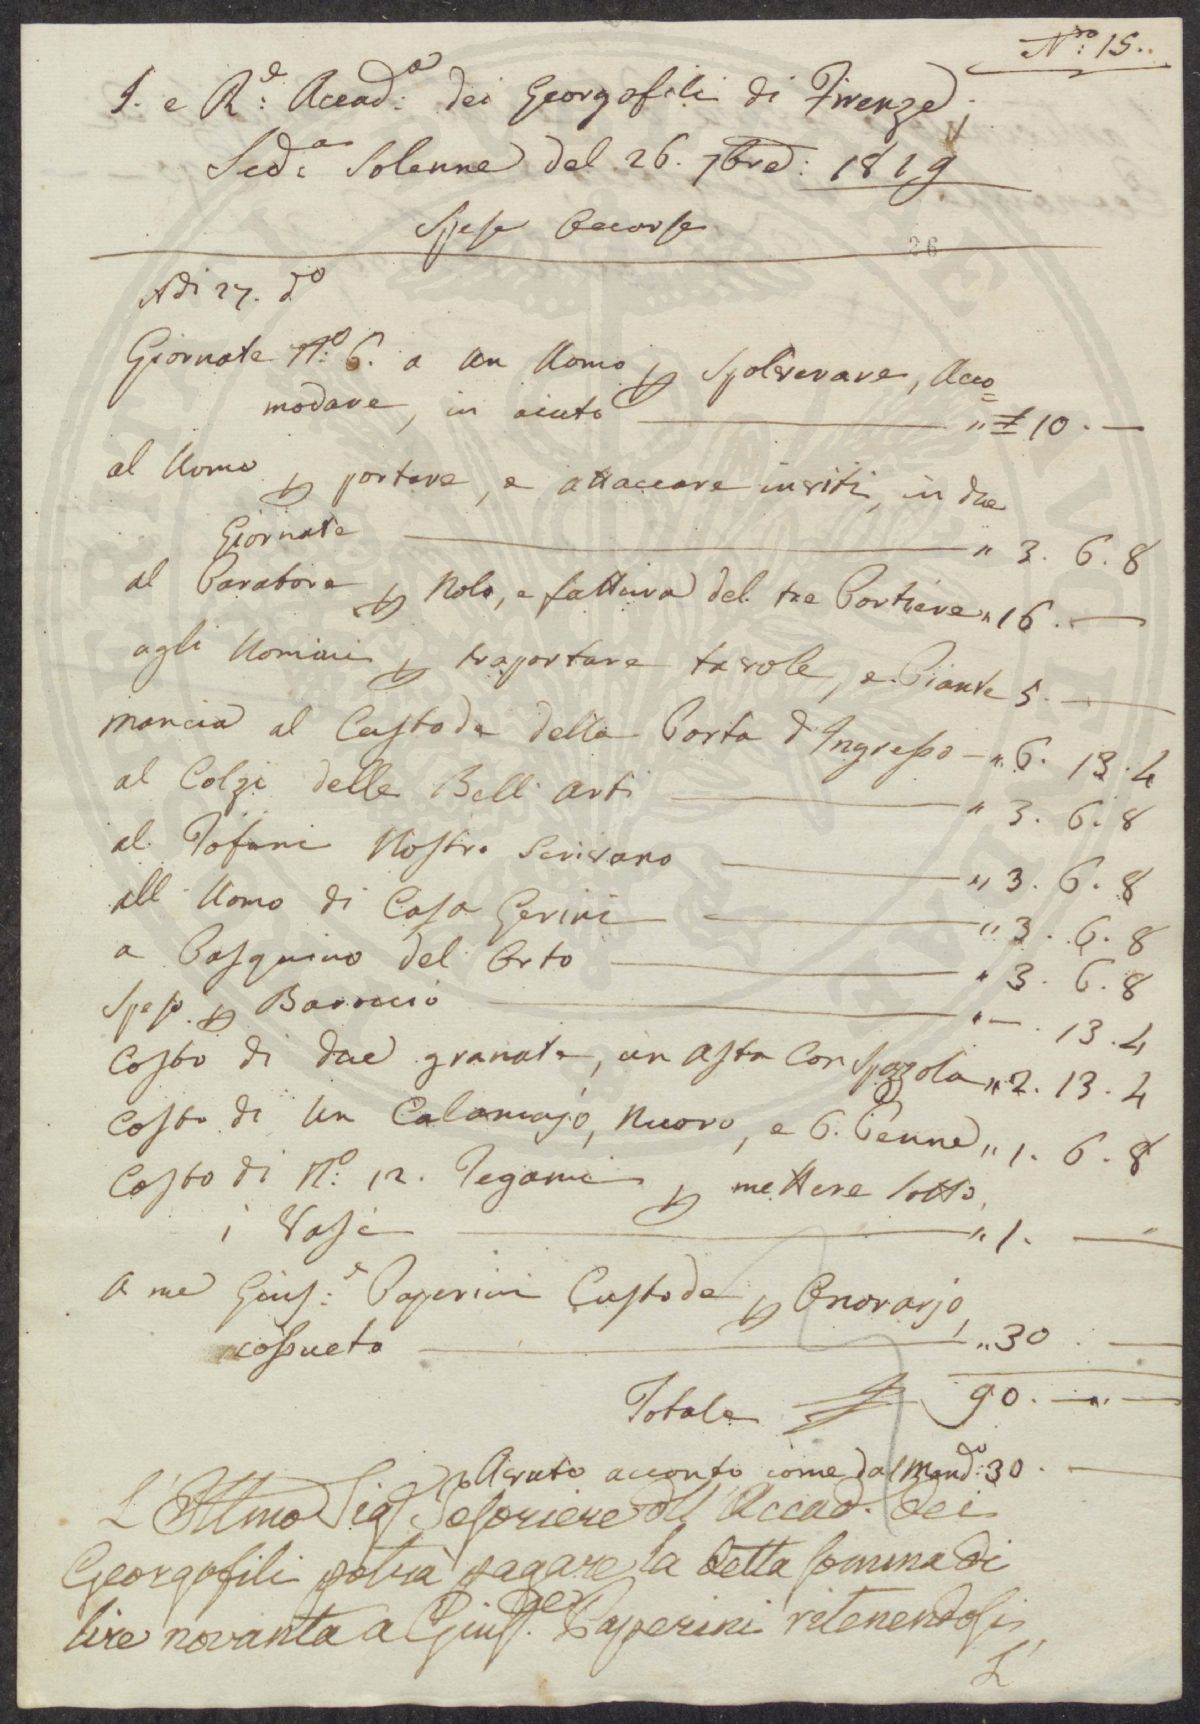 N.ro 15.
I. e R.e Accad.a dei Georgofili di Firenze
Sed.a Solenne del 26. 7bre: 1819
Spese Occorse
26
Adi 27. d.o
Giornate N.o 6. a un Uomo p Spolverare, Acco=
modare, in aiuto " £ 10. —
al Uomo p portare, e attaccare inviti, in due
Giornate " 3. 6. 8
al Paratore p Nolo, e fattura del tre Portiere " 16. —
agli Uomini p traportare tavole, e Piante 5. —
mancia al Custode della Porta d'Ingresso — " 6. 13. 4
al Colzi delle Bell Arti " 3. 6. 8
al Tofani Nostro Scrivano " 3. 6. 8
all Uomo di Casa Gerini " 3. 6. 8
a Pasquino del Orto " 3. 6. 8
Spese p Baroccio " —. 13. 4
Costo di due granate, un Asta con Spazzola " 2. 13. 4
Costo di un Calamajo, Nuovo, e 6. Penne " 1. 6. 8
Costo di N.o 12. Tegami p mettere sotto
i Vasi " 1. —
A me Gius.e Paperini Custode p Onorarjo,
cossueto " 30. —
Totale £ 90. — " —
Avuto acconto come dal Mand.o 30. —
L'Ill.mo Sig. Tesoriere dell'Accad. dei
Georgofili potrà pagare la detta somma di
lire novanta a Giuseppe Paperini ritenendosi
L'